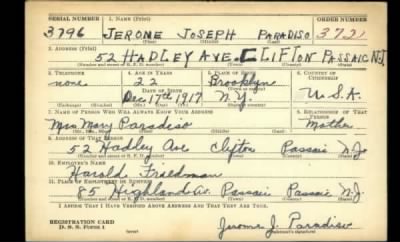 SERIAL NUMBER 1. NAME (Print) ORDER NUMBER
3796 JEROME JOSEPH PARADISO 3721
(First) (Middle) (Last)
2. ADDRESS (Print)
52 HADLEY AVE. CLIFTON PASSAIC N.J.
(Number and street or R. F. D. number) (Town) (County) (State)
3. TELEPHONE 4. AGE IN YEARS 5. PLACE OF BIRTH 6. COUNTRY OF CITIZENSHIP
none 22 Brooklyn
DATE OF BIRTH
Dec 17th 1917 N.Y. U.S.A.
7. NAME OF PERSON WHO WILL ALWAYS KNOW YOUR ADDRESS 8. RELATIONSHIP OF THAT PERSON
Mrs Mary Paradiso Mother
9. ADDRESS OF THAT PERSON
52 Hadley Ave Clifton Passaic N.J
(Number and street or R. F. D. number) (Town) (County) (State)
10. EMPLOYER'S NAME
Harold Friedman
11. PLACE OF EMPLOYMENT OR BUSINESS
85 Highland Av. Passaic Passaic N.J
(Number and street or R. F. D. number) (Town) (County) (State)
I AFFIRM THAT I HAVE VERIFIED ABOVE ANSWERS AND THAT THEY ARE TRUE.
REGISTRATION CARD
D. S. S. Form 1 (over) Jerome J. Paradiso
(Registrant's signature)